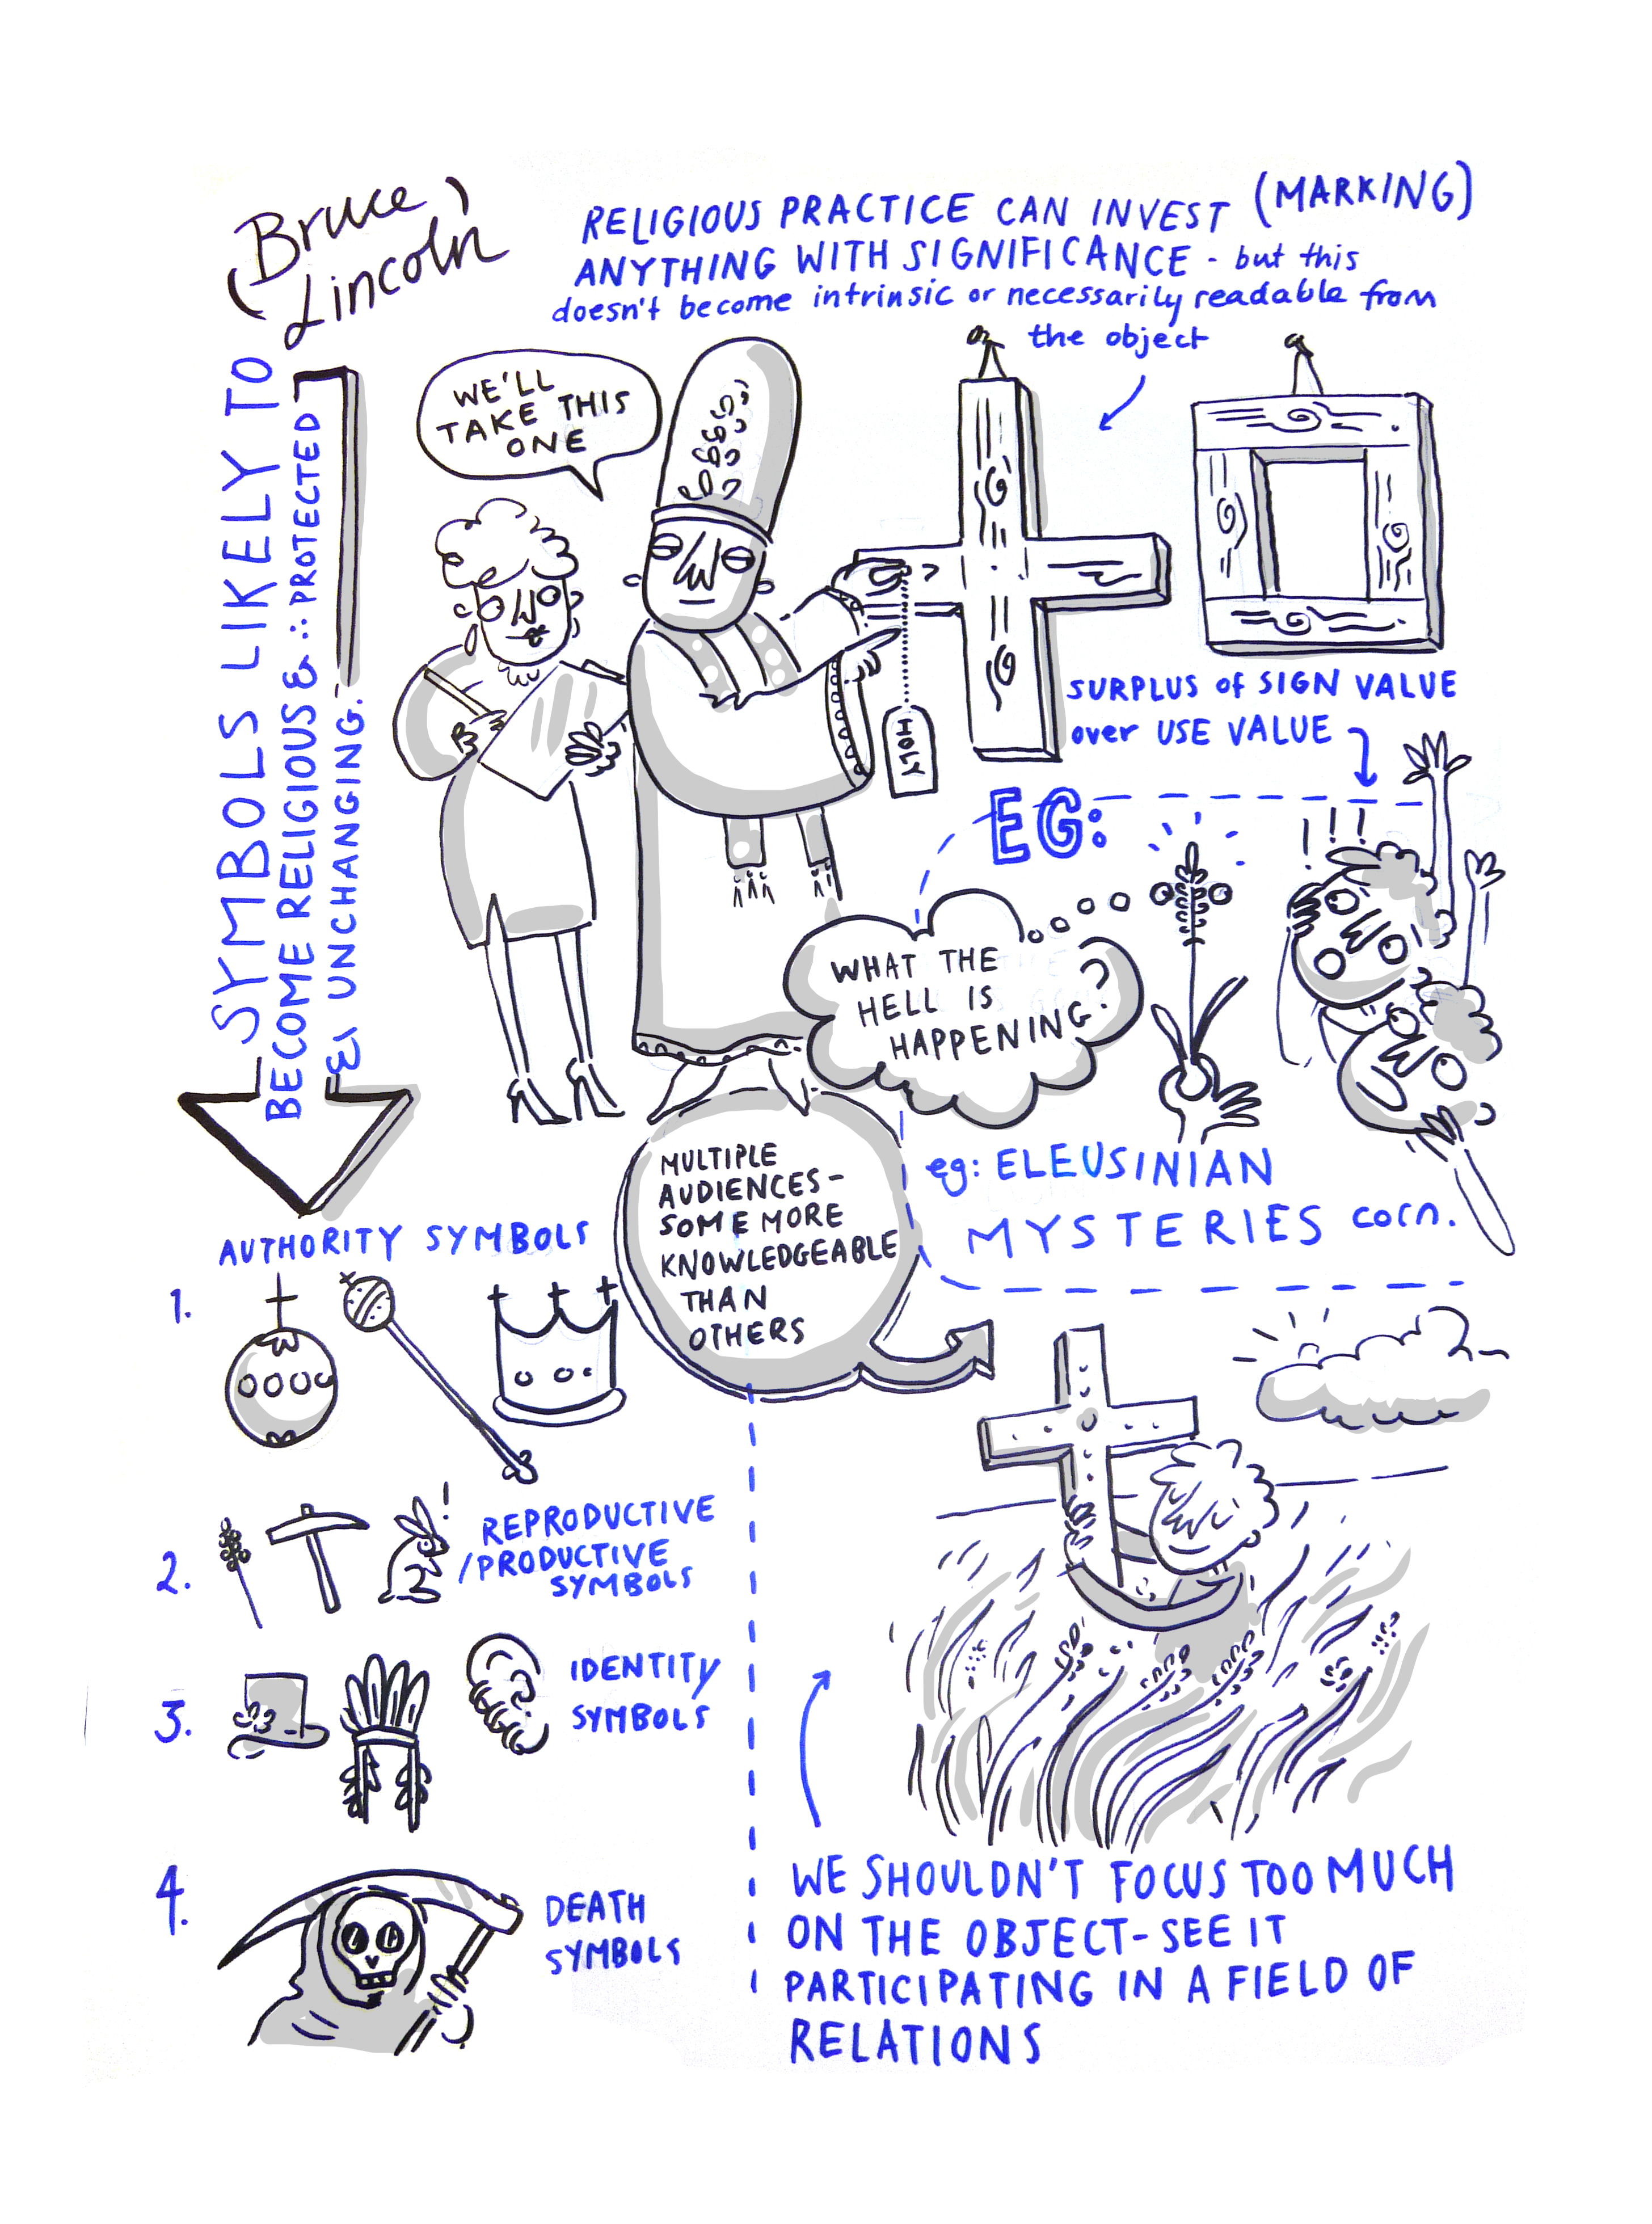 (Bruce)
Lincoln
RELIGIOUS PRACTICE CAN INVEST (MARKING)
ANYTHING WITH SIGNIFICANCE - but this
doesn't become intrinsic or necessarily readable from
the object
WE'LL
TAKE THIS
ONE
HOLY
SURPLUS of SIGN VALUE
over USE VALUE
EG:
!!!
WHAT THE
HELL IS
HAPPENING?
eg: ELEUSINIAN
MYSTERIES corn.
MULTIPLE
AUDIENCES-
SOME MORE
KNOWLEDGEABLE
THAN
OTHERS
SYMBOLS LIKELY TO
BECOME RELIGIOUS & ∴ PROTECTED
& UNCHANGING:
AUTHORITY SYMBOLS
1.
2.
!
REPRODUCTIVE
/PRODUCTIVE
SYMBOLS
3.
IDENTITY
SYMBOLS
4.
DEATH
SYMBOLS
WE SHOULDN'T FOCUS TOO MUCH
ON THE OBJECT-SEE IT
PARTICIPATING IN A FIELD OF
RELATIONS